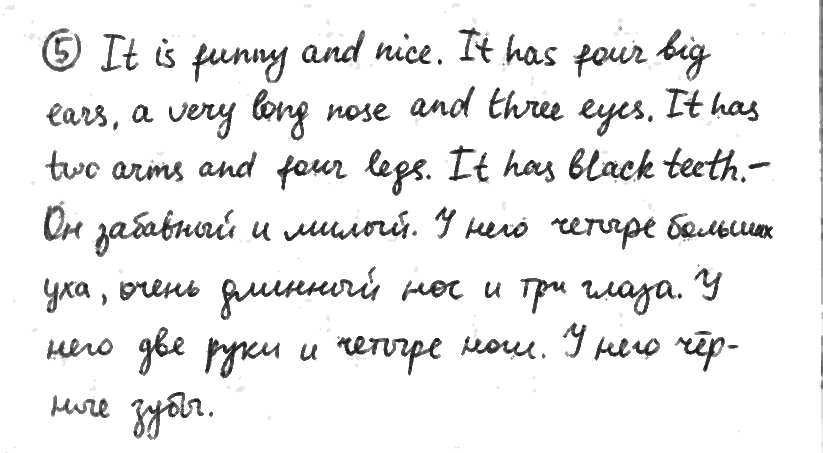 ⑤ It is funny and nice. It has four big
ears, a very long nose and three eyes. It has
two arms and four legs. It has black teeth. –
Он забавный и милый. У него четыре больших
уха, очень длинный нос и три глаза. У
него две руки и четыре ноги. У него чёр-
ные зубы.